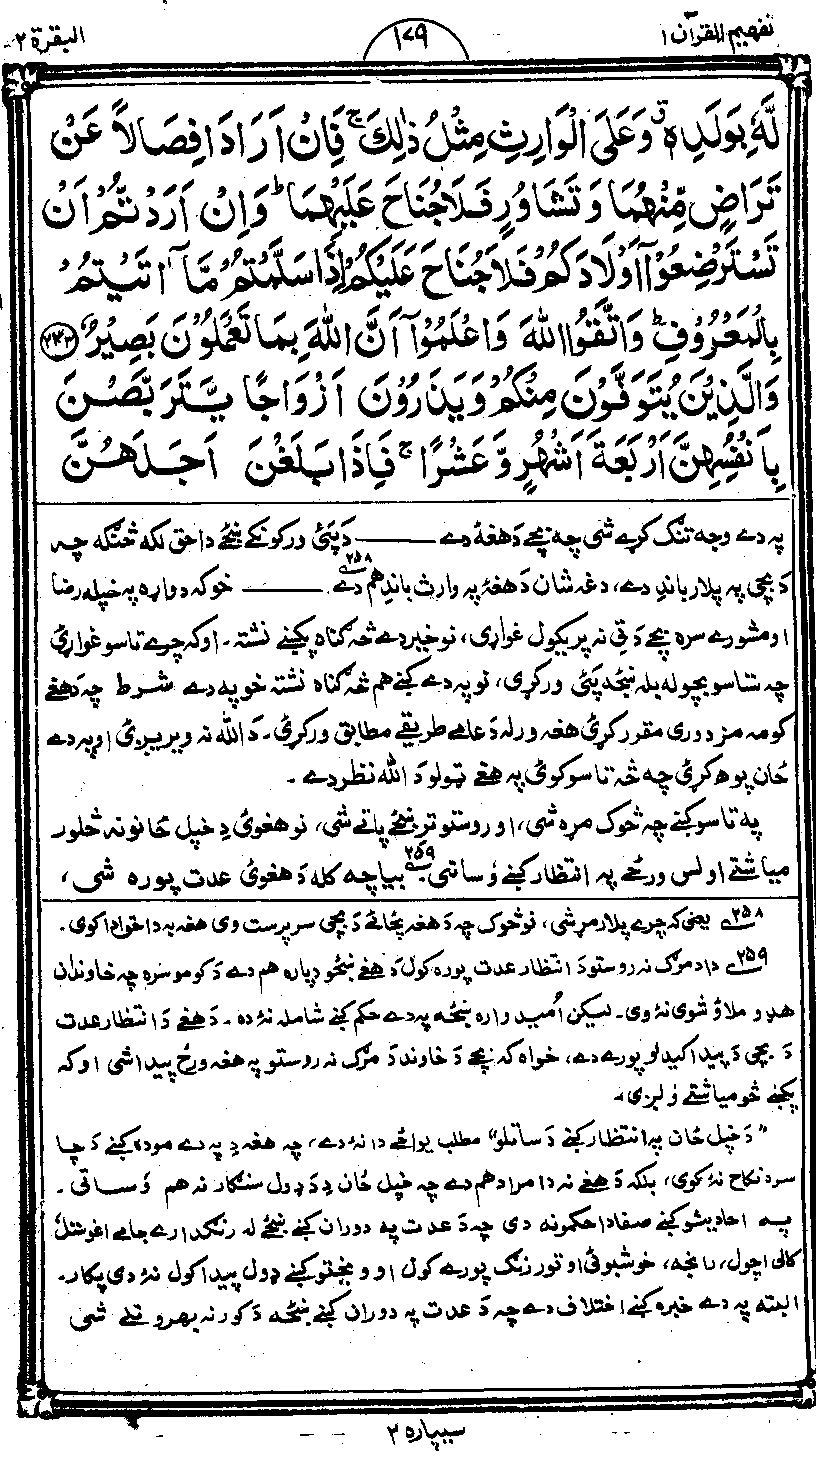 تفهيم القرآن ۱
۱۷۹
البقرة ۲
لَّهٗ بِوَلَدِهٖ ۗ وَعَلَى الْوَارِثِ مِثْلُ ذٰلِكَ ۚ فَاِنْ اَرَادَا فِصَالاً عَنْ
تَرَاضٍ مِّنْهُمَا وَتَشَاوُرٍ فَلَا جُنَاحَ عَلَيْهِمَا ؕ وَاِنْ اَرَدْتُّمْ اَنْ
تَسْتَرْضِعُوْۤا اَوْلَادَكُمْ فَلَا جُنَاحَ عَلَيْكُمْ اِذَا سَلَّمْتُمْ مَّاۤ اٰتَيْتُمْ
بِالْمَعْرُوْفِ ؕ وَاتَّقُوا اللّٰهَ وَاعْلَمُوْۤا اَنَّ اللّٰهَ بِمَا تَعْمَلُوْنَ بَصِيْرٌ
وَالَّذِيْنَ يُتَوَفَّوْنَ مِنْكُمْ وَيَذَرُوْنَ اَزْوَاجًا يَّتَرَبَّصْنَ
بِاَنْفُسِهِنَّ اَرْبَعَةَ اَشْهُرٍ وَّعَشْرًا ۚ فَاِذَا بَلَغْنَ اَجَلَهُنَّ
په دے وجه تنګ کړے شی چه بچے دَ هغهٔ دے ـــــ دَ پَئ ورکونکے ښځے دا حق لکه څنګه چه
دَ بچی په پلار باندے دے، دغه شان دَ هغهٔ په وارث باندِ هم دے ۲۵۸ ـــــ خو که دواړه په خپله رضا
او مشورے سره بچے دَ تی نه پریکول غواړی، نو خیر دے څه ګناه پکښے نشته۔ او که چرے تاسو غواړئ
چه ستاسو بچو له بله ښځه پَئ ورکړی، نو په دے کښے هم څه ګناه نشته خو په دے شرط چه دَ هغے
کومه مزدوری مقرر کړئ هغه ورله دَ عامے طریقے مطابق ورکړئ۔ دَ الله نه ویریږئ او په دے
ځان پوهه کړئ چه څه تاسو کوئ په هغے ټولو دَ الله نظر دے۔
په تاسو کښے چه څوک مړه شی، او روستو تر ښځے پاتے شی، نو هغوئ دِ خپل ځانونه څلور
میاشتے او لس ورځے په انتظار کښے وُساتی ۲۵۹ بیا چه کله دَ هغوئ عدت پوره شی،
۲۵۸ یعنی که چرے پلار مړ شی، نو څوک چه دَ هغه په ځائے دَ بچی سرپرست وی هغه به دا حق ادا کوی۔
۲۵۹ دا د مرګ نه روستو دَ انتظار عدت پوره کول دَ هغے ښځو دپاره هم دے دَ کومو سره چه خاوندان
هډو ملاؤ شوی نهٔ وی۔ لیکن اُمیدواره ښځه په دے حکم کښے شامله نهٔ ده۔ دَ هغے دَ انتظار عدت
دَ بچی دَ پیدا کیدلو پورے دے، خواه که بچے دَ خاوند دَ مرګ نه روستو په هغه ورځ پیدا شی او که
پکښے څو میاشتے وُلږی۔
"دَ خپل ځان په انتظار کښے دَ ساتلو" مطلب یواځے دا نهٔ دے، چه هغه دِ په دے موده کښے دَ چا
سره نکاح نهٔ کوی، بلکه دَ هغے نه دا مراد هم دے چه خپل ځان دِ دَ ډول سنګار نه هم وُساتی۔
په احادیثو کښے صفا دا حکمونه دی چه دَ عدت په دوران کښے ښځے له رنګدارے جامے اغوستل
کالی اچول، رانجه، خوشبوئی او تور رنګ پورے کول او وِیښتو کښے ډول پیدا کول نهٔ دی پکار۔
البته په دے خبره کښے اختلاف دے چه دَ عدت په دوران کښے ښځه دَ کور نه بهر وتلے شی
سیپاره ۲